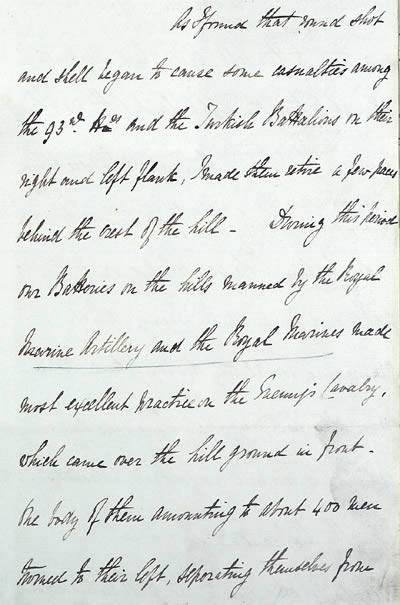 As I found that round shot
and shell began to cause some casualties among
the 93rd Hrs and the Turkish Battalions on their
right and left flank, I made them retire a few paces
behind the crest of the hill - During this period
our Batteries on the hills manned by the Royal
Marine Artillery and the Royal Marines made
most excellent practice on the Enemy's Cavalry,
which came over the hill ground in front -
One body of them amounting to about 400 men
turned to their left, separating themselves from